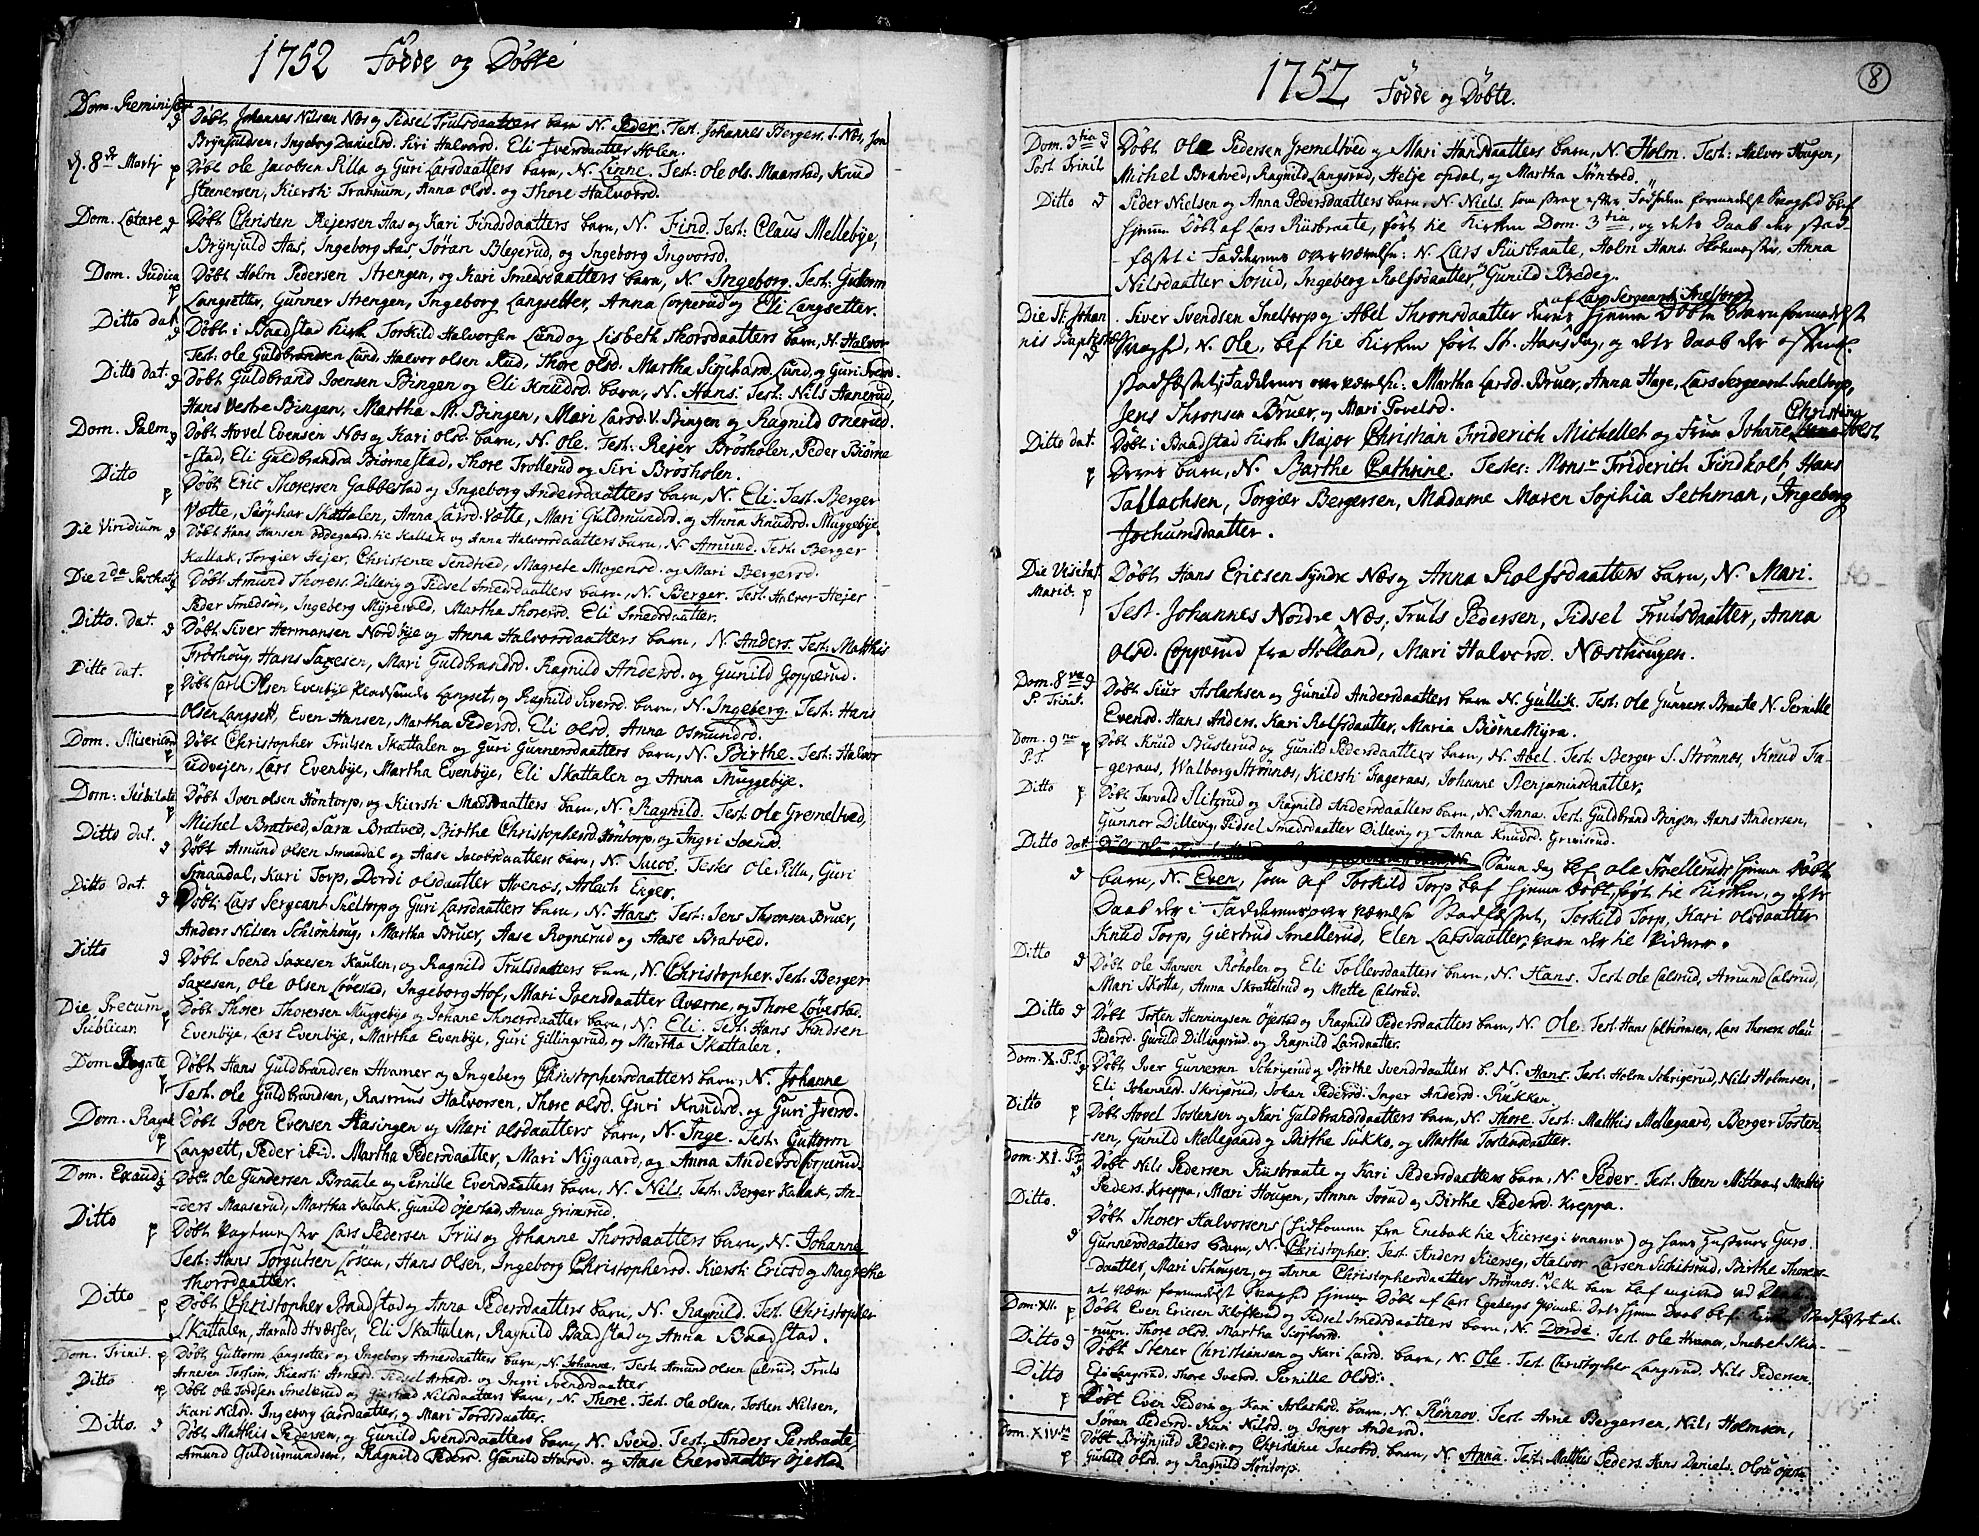 1752 Fødde og Døbte
Dom. Reminisc. Døbt Johannes Nilsen Næs og Sidsel Trulsdaatters barn N. Peder. Test. Johannes Bergers. S. Næs, Jon
Brynfuldsen, Ingeborg Danielsd. Siri Halvorsd. Eli Iversdaatter Holen.
d. 8de Martj Døbt Ole Jacobsen Pilla og Guri Larsdaatters barn, N. Linne. Test: Ole Ols. Maarstad, Knud
Steenersen, Kiersti Trannum, Anna Olsd. og Thore Halvorsd.
Dom. Lætare Døbt Christen Rejersen Aas og Kari Findsdaatters barn, N. Find. Test: Claus Mellebye,
Brynjuld Aas, Ingeborg Aas, Jøran Blegerud, og Ingeborg Ingvorsd.
Dom. Judica Døbt Holm Pedersen Strengen, og Kari Smedsdaatters barn, N. Ingeborg. Test: Guttorm
Langsetter, Gunner Strengen, Ingeborg Langsetter, Anna Copperud og Eli Langsetter.
Ditto dat. Døbt i Baadstad Kirk Torkild Halvorsen Lund og Lisbeth Thorsdaatters barn, N. Halvor
Test: Ole Guldbrandsen Lund, Halvor Olsen Rud, Thore Olsd. Martha Siøphard. Lund, og Guri Svend.
Ditto dat. Døbt Guldbrand Joensen Bingen og Eli Knudsd. barn, N. Hans. Test: Nils Hanerud,
Hans Vestre Bingen, Martha M. Bingen, Mari Larsd. V. Bingen og Ragnild Onerud.
Dom. Palm. Døbt Hovel Evensen Næs og Kari Olsd. barn, N. Ole. Test. Rejer Brosholen, Peder Biørne
-stad, Eli Guldbrandsd Biørnestad, Thore Trollerud og Siri Brosholen.
Ditto Døbt Eric Thoresen Gabbestad og Ingeborg Andersdaatters barn, N. Eli. Test. Berger
Vætte, Siøphar Skattalen, Anna Larsd. Vætte, Mari Guldmundsd. og Anna Knudsd. Muggebye.
Die Viridium Døbt Hans Hansen Ødegaard til Kallak og Anna Halvorsdaatters barn, N. Amund. Test. Berger
Kallak, Torgier Hejer, Christence Tendtved, Magrete Mogensd. og Mari Bergersd.
Die 2da Paschat. Døbt Amund Thoress. Dillevig og Sidsel Smedsdaatters barn, N. Berger. Test. Halvor Hejer
Peder Smedsøn, Ingeberg Myrevold, Martha Thoresd. Eli Smedsdaatter.
Ditto. dat. Døbt Siver Hermansen Nordbye og Anna Halvorsdaatters barn, N. Anders. Test: Matthis
Frøshoug, Hans Saxesen, Mari Guldbrandsd. Ragnild Andersd. og Gunild Gopperud.
Ditto dat. Døbt Carl Olsen Evenbye Langset, og Ragnild Siversd. barn, N. Ingeberg. Test. Hans
Olsen Langsett, Even Hansen, Martha Pedersd. Eli Olsd. Anna Osmundsd.
Dom. Misericor. Døbt Christopher Trulsen Skattalen og Guri Gunnersdaatters barn, N. Birthe. Test: Halvor
Udvejen, Lars Evenbye, Martha Evenbye, Eli Skattalen og Anna Muggebye.
Dom. Jubilate Døbt Iven Olsen Høntorp, og Kiersti Madsdaatters barn, N. Ragnild. Test: Ole Gremeltved,
Michel Bratved, Sara Bratved, Birthe Christophersd. Høntorp, og Ingri Joensd.
Ditto dat. Døbt Amund Olsen Smaadal og Aase Jacobsdaatters barn, N. Jacob. Testes Ole Pilla, Guri
Smaadal, Kari Torp, Dordi Olsdaatter Hvenæs, Aslach Eiger.
Ditto dat. Døbt: Lars Sergeant Sneltorp og Guri Larsdaatters barn, N. Hans. Test: Jens Thronsen Bruer,
Anders Nilsen Schiønhoug, Martha Bruer, Aase Rognerud og Aase Bratved.
Ditto Døbt Svend Saxesen Kaulen, og Ragnild Trulsdaatters barn, N. Christopher. Test: Berger
Saxesen, Ole Olsen Løvestad, Ingeborg Hof, Mari Ivensdaatter Averne, og Thore Løvestad.
Die Precum Publican. Døbt Thorer Thorersen Muggebye og Johane Thoresdaatter barn, N. Eli. Test: Hans Findsen
Evenbye, Lars Evenbye, Martha Evenbye, Guri Gillingsrud, og Martha Skattalen.
Dom Rogate Døbt Hans Guldbrandsen Hvamer og Ingeberg Christophersdaatters barn, N. Johanne
Test. Ole Guldbrandsen, Rasmus Halvorsen, Thore Olsd. Guri Knudsd. og Guri Iversd.
Dom. Rogate Døbt Joen Evensen Hasingen og Mari Olsdaatters barn, N. Inge. Test: Guttorm
Langsett, Peder ibid. Martha Pedersdaatter, Mari Nygaard, og Anna Andersd Copperud.
Dom. Exaudj Døbt Ole Gundersen Braate og Pernille Evensdaatters barn, N. Nils. Test: Berger Kallak, An-
ders Maaserud, Martha Kallak, Gunild Øjestad, Anna Grimsrud.
Ditto Døbt Vagtmester Lars Pedersen Friis og Johanne Thorsdaatters barn, N. Johanne
Test: Hans Torgutsen Løsen, Hans Olsen, Ingeborg Christophersd. Kiersti Ericsd og Magrethe
Thorsdaatter.
Ditto Døbt Christopher Baadstad og Anna Pedersdaatters barn, N. Ragnild. Test. Christopher
Skattalen, Harald Hvæsser, Eli Skattalen, Ragnild Baadstad og Anna Baadstad.
Dom. Trinit. Døbt Guttorm Langsetter og Ingeborg Arnesdaatters barn, N. Johanne. Test. Amund Olsen Calsrud, Truls
Arnesen Tossim, Kiersti Arnesd. Sidsel Arnesd. og Ingri Svendsdaatter
Ditto Døbt Ole Tordsen Smellerud og Nilsdaatters barn, N. Thore. Test. Ole Olsen, Tosten Nilsen,
Kari Nilsd. Ingeborg Larsdaatter, og Mari Tordsdaatter.
Ditto. Døbt Matthis Pedersen, og Gunild Svendsdaatters barn, N. Svend. Test. Anders Persbraate,
Amund Guldumundsen, Ragnild Pedersd. Gunild Hansd. og Aase Enersdaatter Øjestad
1752 Fødde og Døbte.
8
Dom. 3tia Post Trinit. Døbt Ole Pedersen Gremeltved og Mari Hansdaatters barn, N. Holm. Test: Halvor Hougen,
Michel Bratved, Ragnild Langsrud, Helje Opdal, og Martha Tøntved.
Ditto Peder Nielsen og Anna Pedersdaatters barn, N. Niels, som strax efter Fødselen formedelst Svaghed blef
hjemme Døbt af Lars Riisbraate, ført til Kirken Dom. 3tia, og dets Daab der stad-
-fæstet i Faddernes overværelse: N. Lars Riisbraate, Holm Hans. Holmester, Anna
Nilsdaatter Sorud, Ingeberg Rolfsdaatter, Gunild Brødeg.
af Lars Sergeant Sneltorp
Die St. Johannis Baptistæ Siver Svendsen Sneltorp og Abel Thronsdaatter deres hjemme Døbte Barn formedelst
Svaghed, N. Ole, blef til Kirken ført St. Hansdag, og dets daab der
stadfæstet i Faddernes overværelse: Martha Larsd. Bruer, Anna Hage, Lars Sergeant Sneltorp,
Jens Thronsen Bruer, og Mari Povelsd.
Christina
Ditto dat. Døbt i Baadstad Kirk Major Christian Friderich Michellet og Frue Johanne Holst
Deres barn, N. Barthe Cathrine. Testes: Monsr Friderich Findholt, Hans
Tallachsen, Torgier Bergersen, Madame Maren Sophia Sethman, Ingeborg
Jochumsdaatter.
Die Visitat. Mariæ. Døbt Hans Ericsen Syndre Næs og Anna Rolfsdaatters barn, N. Mari.
Test. Johannes Nordre Næs, Truls Pedersen, Sidsel Trulsdaatter, Anna
Olsd. Copperud fra Holland, Mari Halvorsd. Næsthougen.
Dom. 8va P. Trinit. Døbt Siur Aslachsen og Gunild Andersdaatters barn N. Gullik. Test. Ole Gunners. Braate N. Pernille
Evensd. Hans Anders. Kari Rolfsdaatter, Maria BiørneMyra.
Dom. 9na P.T. Døbt Knud Busterud og Gunild Pedersdaatters barn, N. Abel. Test. Berger S. Strønnæs, Knud Fa-
-geraas, Walborg Strønnæs, Kiersti Fageraas, Johanne Benjaminsdaatter.
Ditto Døbt Tarvald Slitzrud og Ragnild Andersdaatters barn, N. Anna. Test. Guldbrand Bingen, Hans Andersen,
Gunnor Dillevig, Sidsel Smedsdaatter Dillevig og Anna Knudsd. Grimsrud.
Ditto dat. Samme dag blef Ole Smelleruds hjemme Døbte
barn, N. Even, som af Torkild Torp blef hjemme Døbt, ført til Kirken, og dets
Daab der i Faddernes overværelse Stadfæstet, Torkild Torp, Kari Olsdaatter
Knud Torp, Giertrud Smellerud, Elen Larsdaatter, vare der til vidner.
Ditto Døbt Ole Hansen Røholen og Eli Tollevsdaatters barn, N. Hans. Test. Ole Calsrud, Amund Calsrud,
Mari Skotte, Anna Skrattsrud og Mette Calsrud.
Ditto Døbt Tosten Henningsen Øjestad og Ragnild Pedersdaatters barn, N. Ole. Test. Hans Colbiørnsen, Lars Thorers. Olau
Pedersd. Gunild Dillingsrud. og Ragnild Larsdaatter.
Dom. X. P.T. Døbt Iver Gunnersen Schrigerud og Birthe Svendsdaatters b. N. Hans. Test. Holm Schrigerud, Nils Holmsen,
Eli Johannesd. Skrigerud, Johan Pedersd. Inger Andersd. Rukken.
Ditto Døbt Hovel Tostensen og Kari Guldbrandsdaatters barn, N. Thore. Test: Matthis Mellegaard, Berger Tosten-
sen, Gunild Mellegaard og Birthe Sukke, og Martha Tostensdaatter.
Dom. XI. P.T. Døbt Nils Pedersen Riisbraate og Kari Pedersdaatters barn, N. Peder. Test. Steen Mitraas, Matthis
Peders. Kreppa, Mari Hougen, Anna Sorud og Birthe Pedersd. Kreppa.
Ditto. Døbt Thorer Halvorsens (hidkommen fra Enebak til Kierseg i vaares) og hans Hustrues Guro
Gunnersdaatters Barn, N. Christopher. Test. Anders Kierseg, Halvor Larsen Schibsrud, Birthe Thorers-
daatter, Mari Schougen, og Anna Christophersdaatter Strønnæs. NB dette barn blef angivet ved
at være formedelst Svaghed hjemme Døbt af Lars Egebergs Qvinde Dets hjemme Daab blef Stadfæstet at.
Dom. XII. Døbt Even Ericsen Klofterud og Sidsel Smedsdaatters barn, N. Dorde. Test. Ole Hvamer, Snebret Skin-
-num. Thore Olsd. Martha Siøphersd.
Ditto Døbt Stener Christiansen og Kari Larsd. barn, N. Ole. Test. Christopher Langsrud, Nils Pedersen.
Eli Langsrud. Thore Iversd. Pernille Olsd.
Ditto Døbt Even Peders og Kari Aslachsd. barn, N. Rønnov. Test. Arne Bergersen, Nils Holmsen,
Jøran Pedersd. Kari Nilsd. og Inger Andersd.
Dom. XIV Døbt Brynjuld Peders. og Christence Jacobsd. barn, N. Anna. Test: Matthis Peders. Hans Daniels. Olou Opsta
Gunild Olsd. og Ragnild Høntorp.